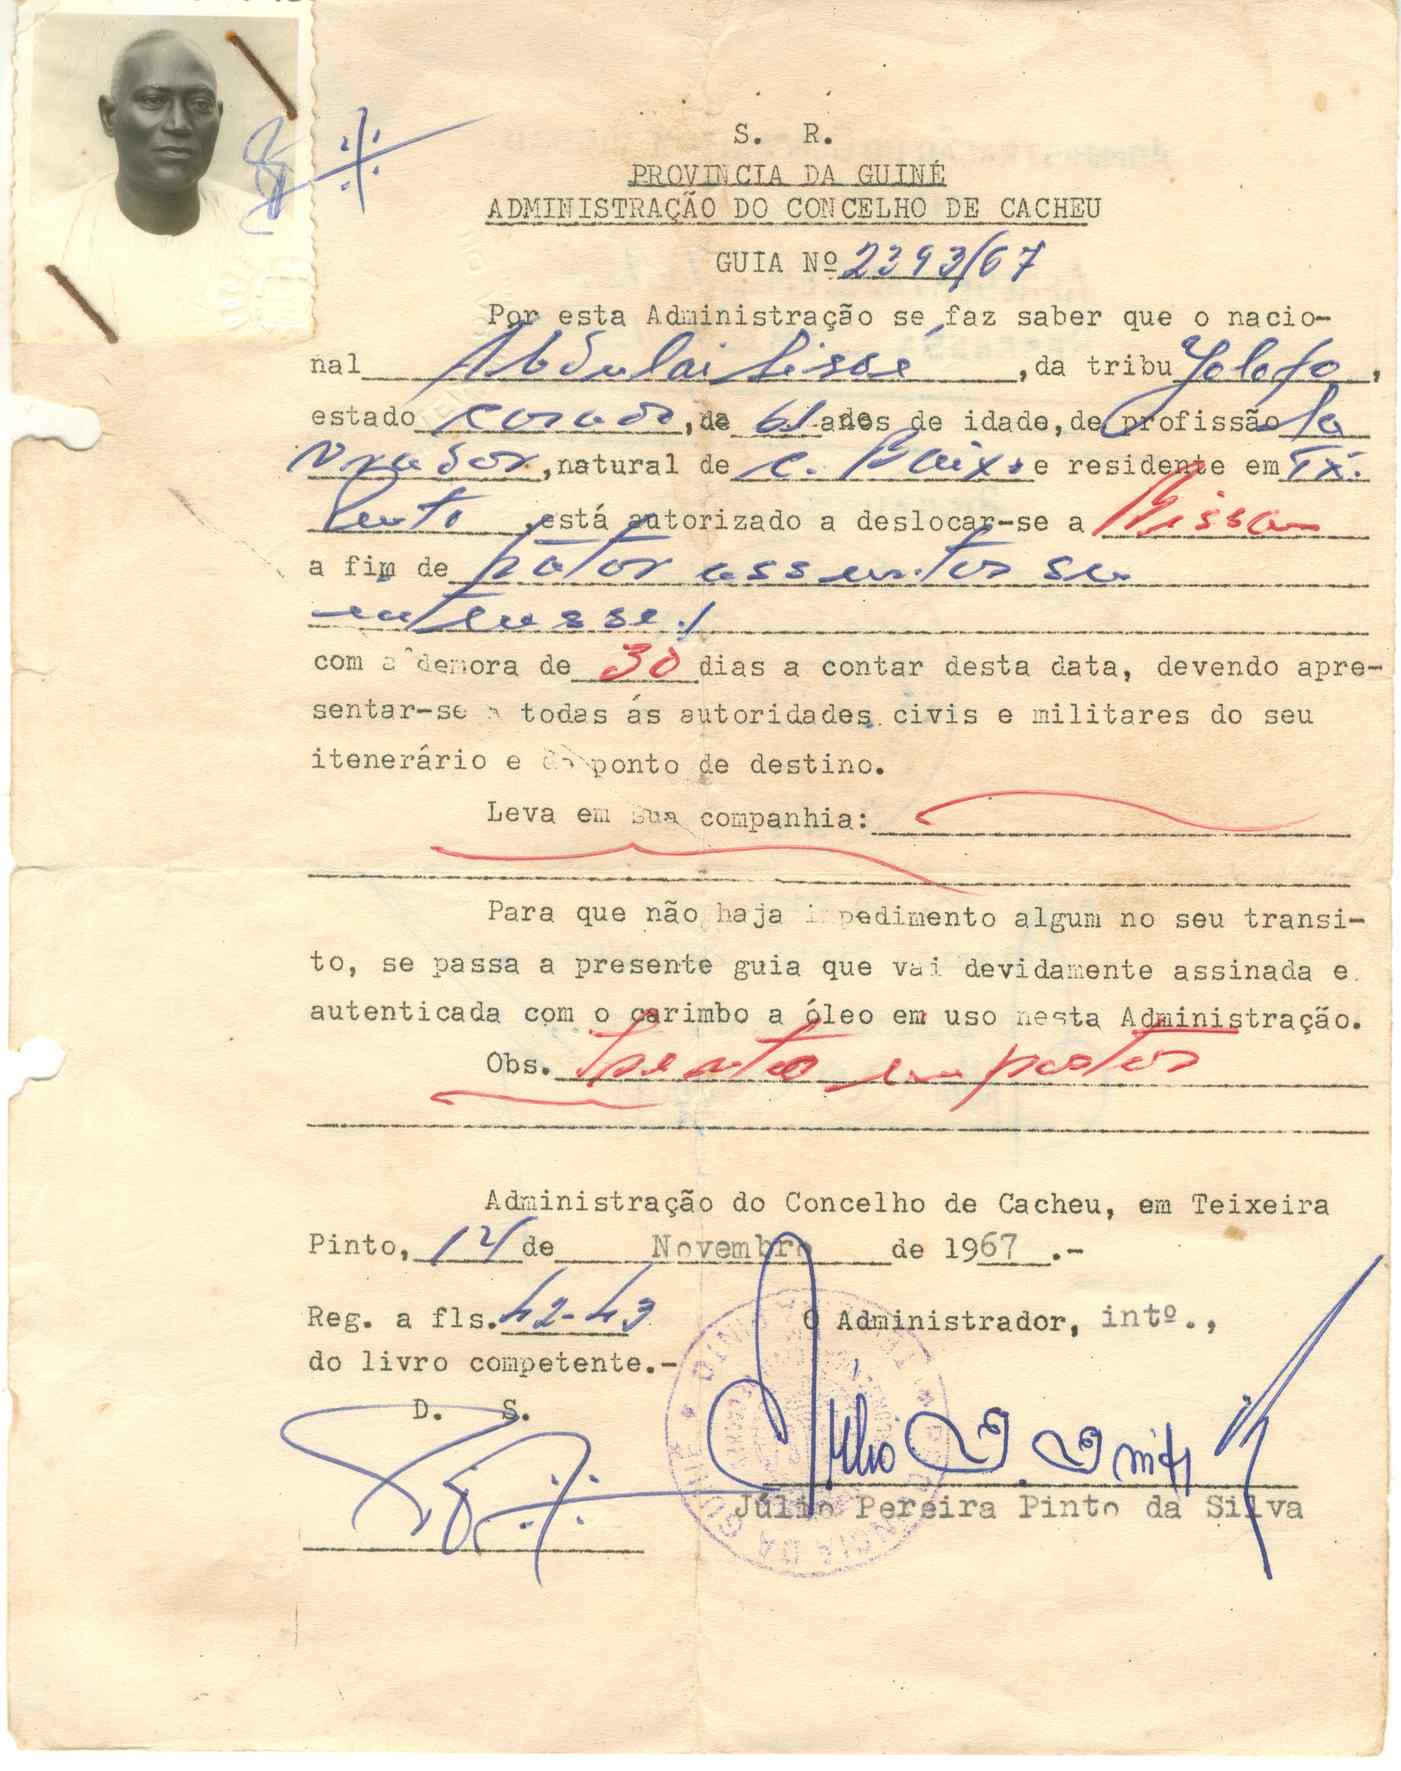 S. R.
PROVINCIA DA GUINÉ
ADMINISTRAÇÃO DO CONCELHO DE CACHEU
GUIA Nº 2393/67
Por esta Administração se faz saber que o nacio-
nal Abdulai Sissé, da tribu Jolofo,
estado casado, de 61 anos de idade, de profissão la
vrador, natural de C. Baixo e residente em Tx.
Pinto, está autorizado a deslocar-se a Bissau
a fim de tratar assuntos seu
interesse./
com a demora de 30 dias a contar desta data, devendo apre-
sentar-se a todas ás autoridades civis e militares do seu
itenerário e do ponto de destino.
Leva em sua companhia:
Para que não haja impedimento algum no seu transi-
to, se passa a presente guia que vai devidamente assinada e
autenticada com o carimbo a óleo em uso nesta Administração.
Obs. Isento impostos
Administração do Concelho de Cacheu, em Teixeira
Pinto, 14 de Novembro de 1967.-
Reg. a fls. 42-43 O Administrador, intº.,
do livro competente.-
D. S.
Júlio Pereira Pinto da Silva
PROVINCIA DA GUINÉ